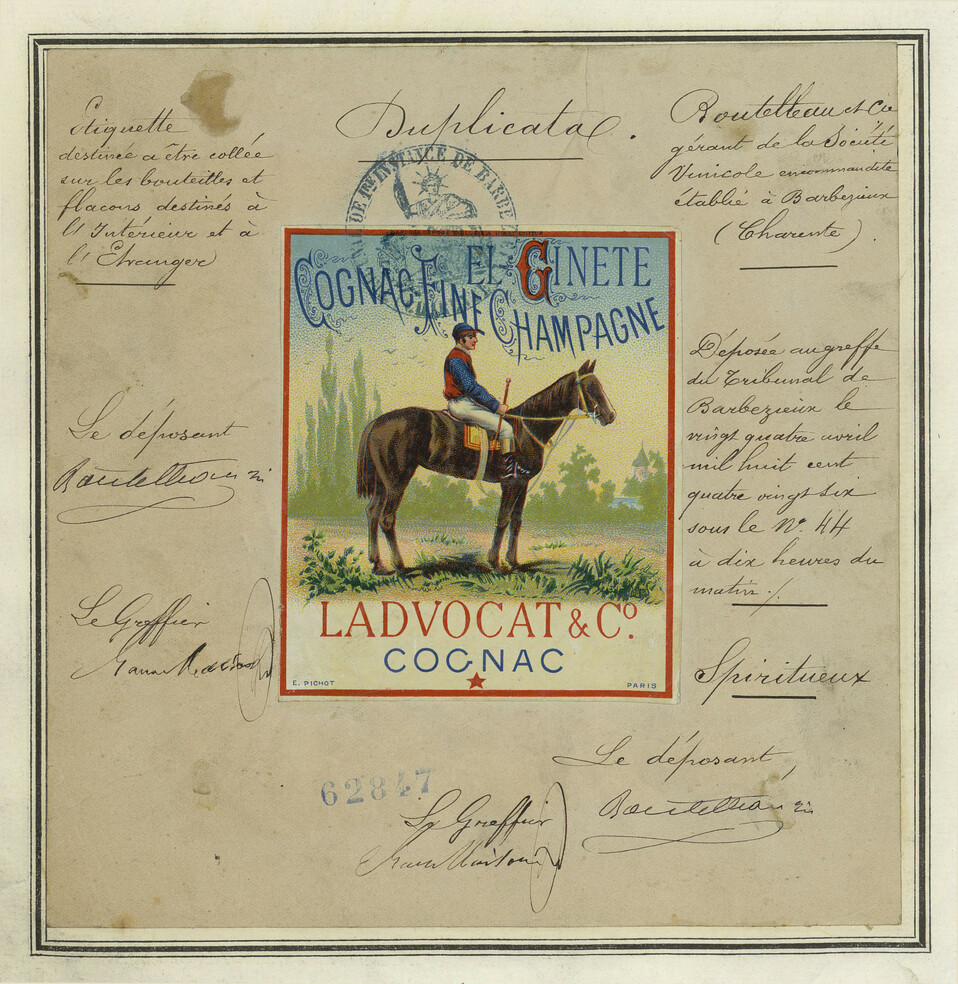 Etiquette
destinée à être collée
sur les bouteilles et
flacons destinés à
l'Interieur et à
l'Etranger
Duplicata.
Boutelleau et Cie
gérant de la Société
Vinicole encommandite
établie à Barbezieux
(Charente).
DE 1RE INSTANCE DE BARBE
EL GINETE
COGNAC FINE CHAMPAGNE
LADVOCAT & Co.
COGNAC
E. PICHOT
PARIS
Le déposant
Boutelleau
Le Greffier
Déposée au greffe
du Tribunal de
Barbezieux le
vingt quatre avril
mil huit cent
quatre vingt six
sous le No. 44
à dix heures du
matin ./.
Spiritueux
Le déposant,
Boutelleau
62847
Le Greffier